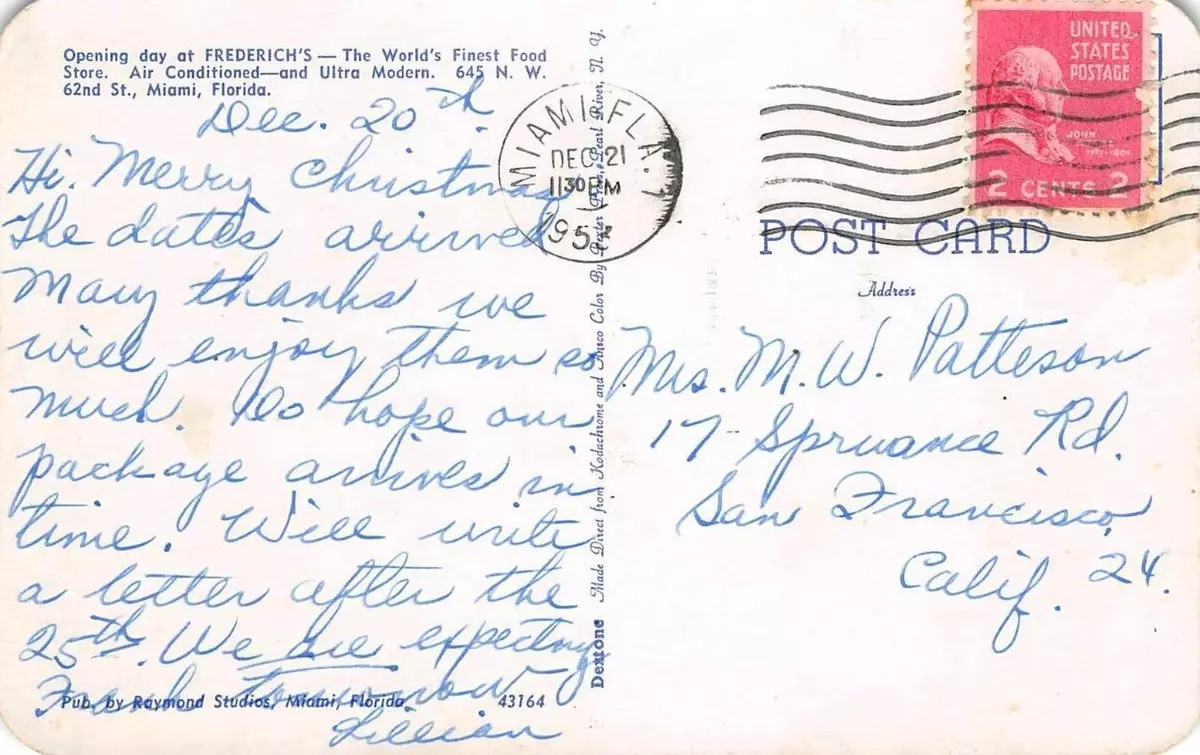 Opening day at FREDERICH'S — The World's Finest Food
Store. Air Conditioned—and Ultra Modern. 645 N. W.
62nd St., Miami, Florida.
Dec. 20th.
Hi. Merry Christmas
The dates arrived
Many thanks we
will enjoy them so
much. Do hope our
package arrives in
time. Will write
a letter after the
25th. We are expecting
Frank tomorrow
Lillian
Pub. by Raymond Studios, Miami, Florida
43164
Dextone Made Direct from Kodachrome and Ansco Color By Dexter Press, Pearl River, N. Y.
MIAMI, FLA. 1
DEC 21
11 30 PM
195
UNITED
STATES
POSTAGE
JOHN
2 CENTS 2
POST CARD
Address
Mrs. M. W. Patteson
17 Spruance Rd.
San Francisco,
Calif. 24.